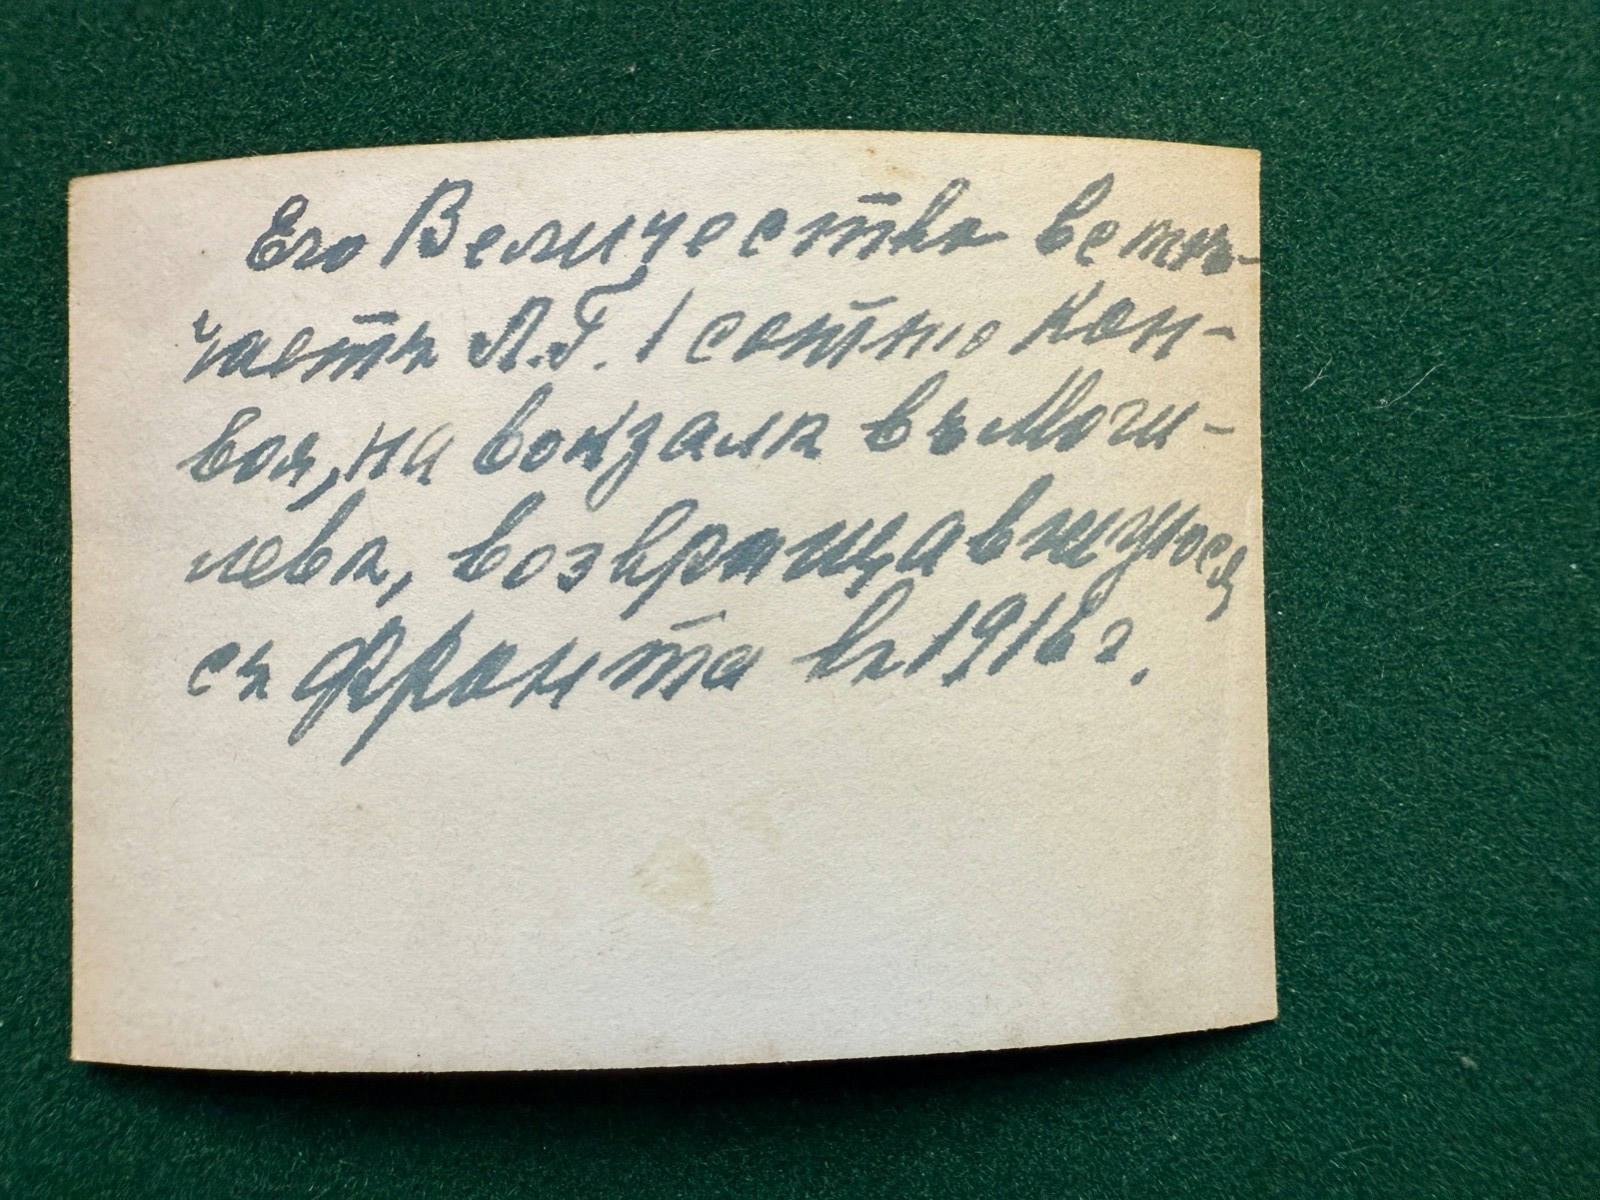 Его Величество встрѣ-
чаетъ Л.Г. 1 сотню Кон-
воя, на вокзалѣ въ Моги-
левѣ, возвращавшуюся
съ фронта въ 1916 г.